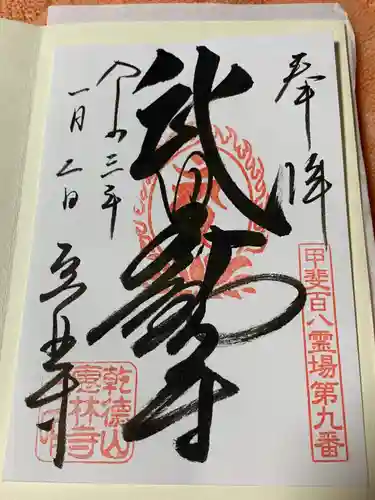 奉拝
甲斐百八霊場第九番
武田不動尊
令和三年
一月 日
恵林寺
乾德山
惠林寺